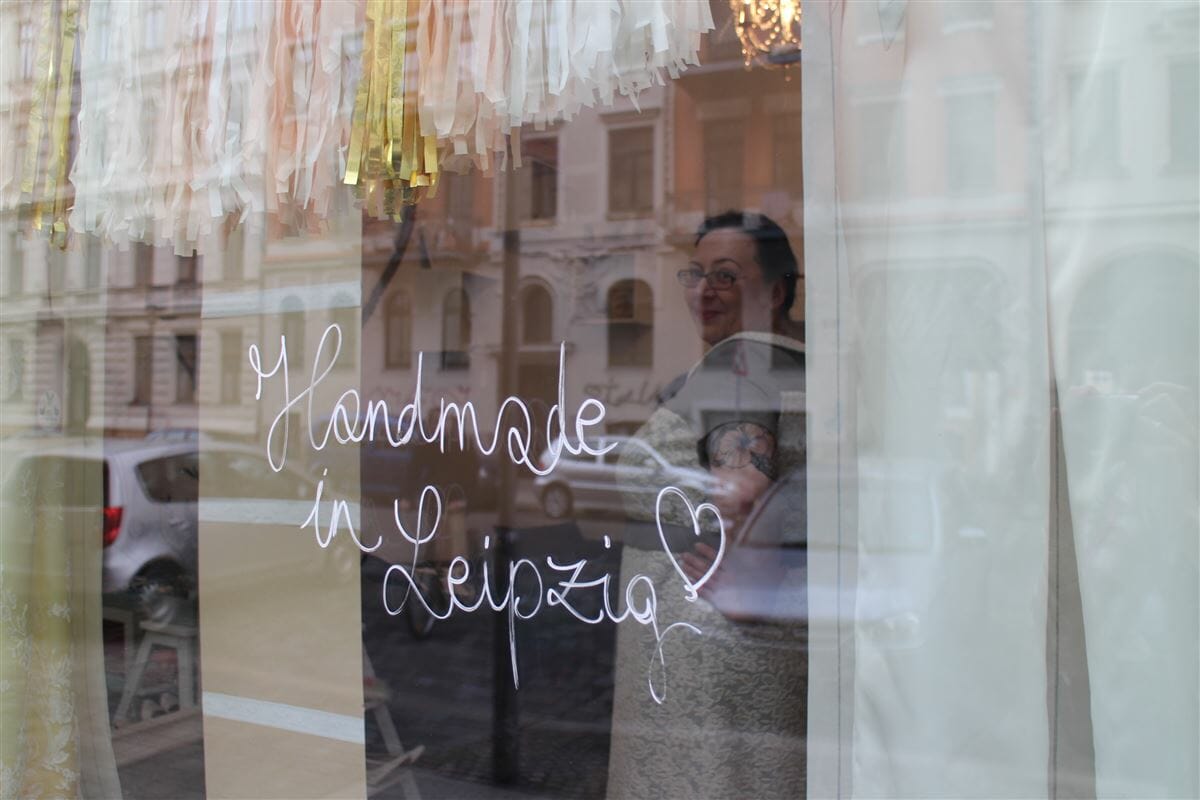 Handmade
in Leipzig